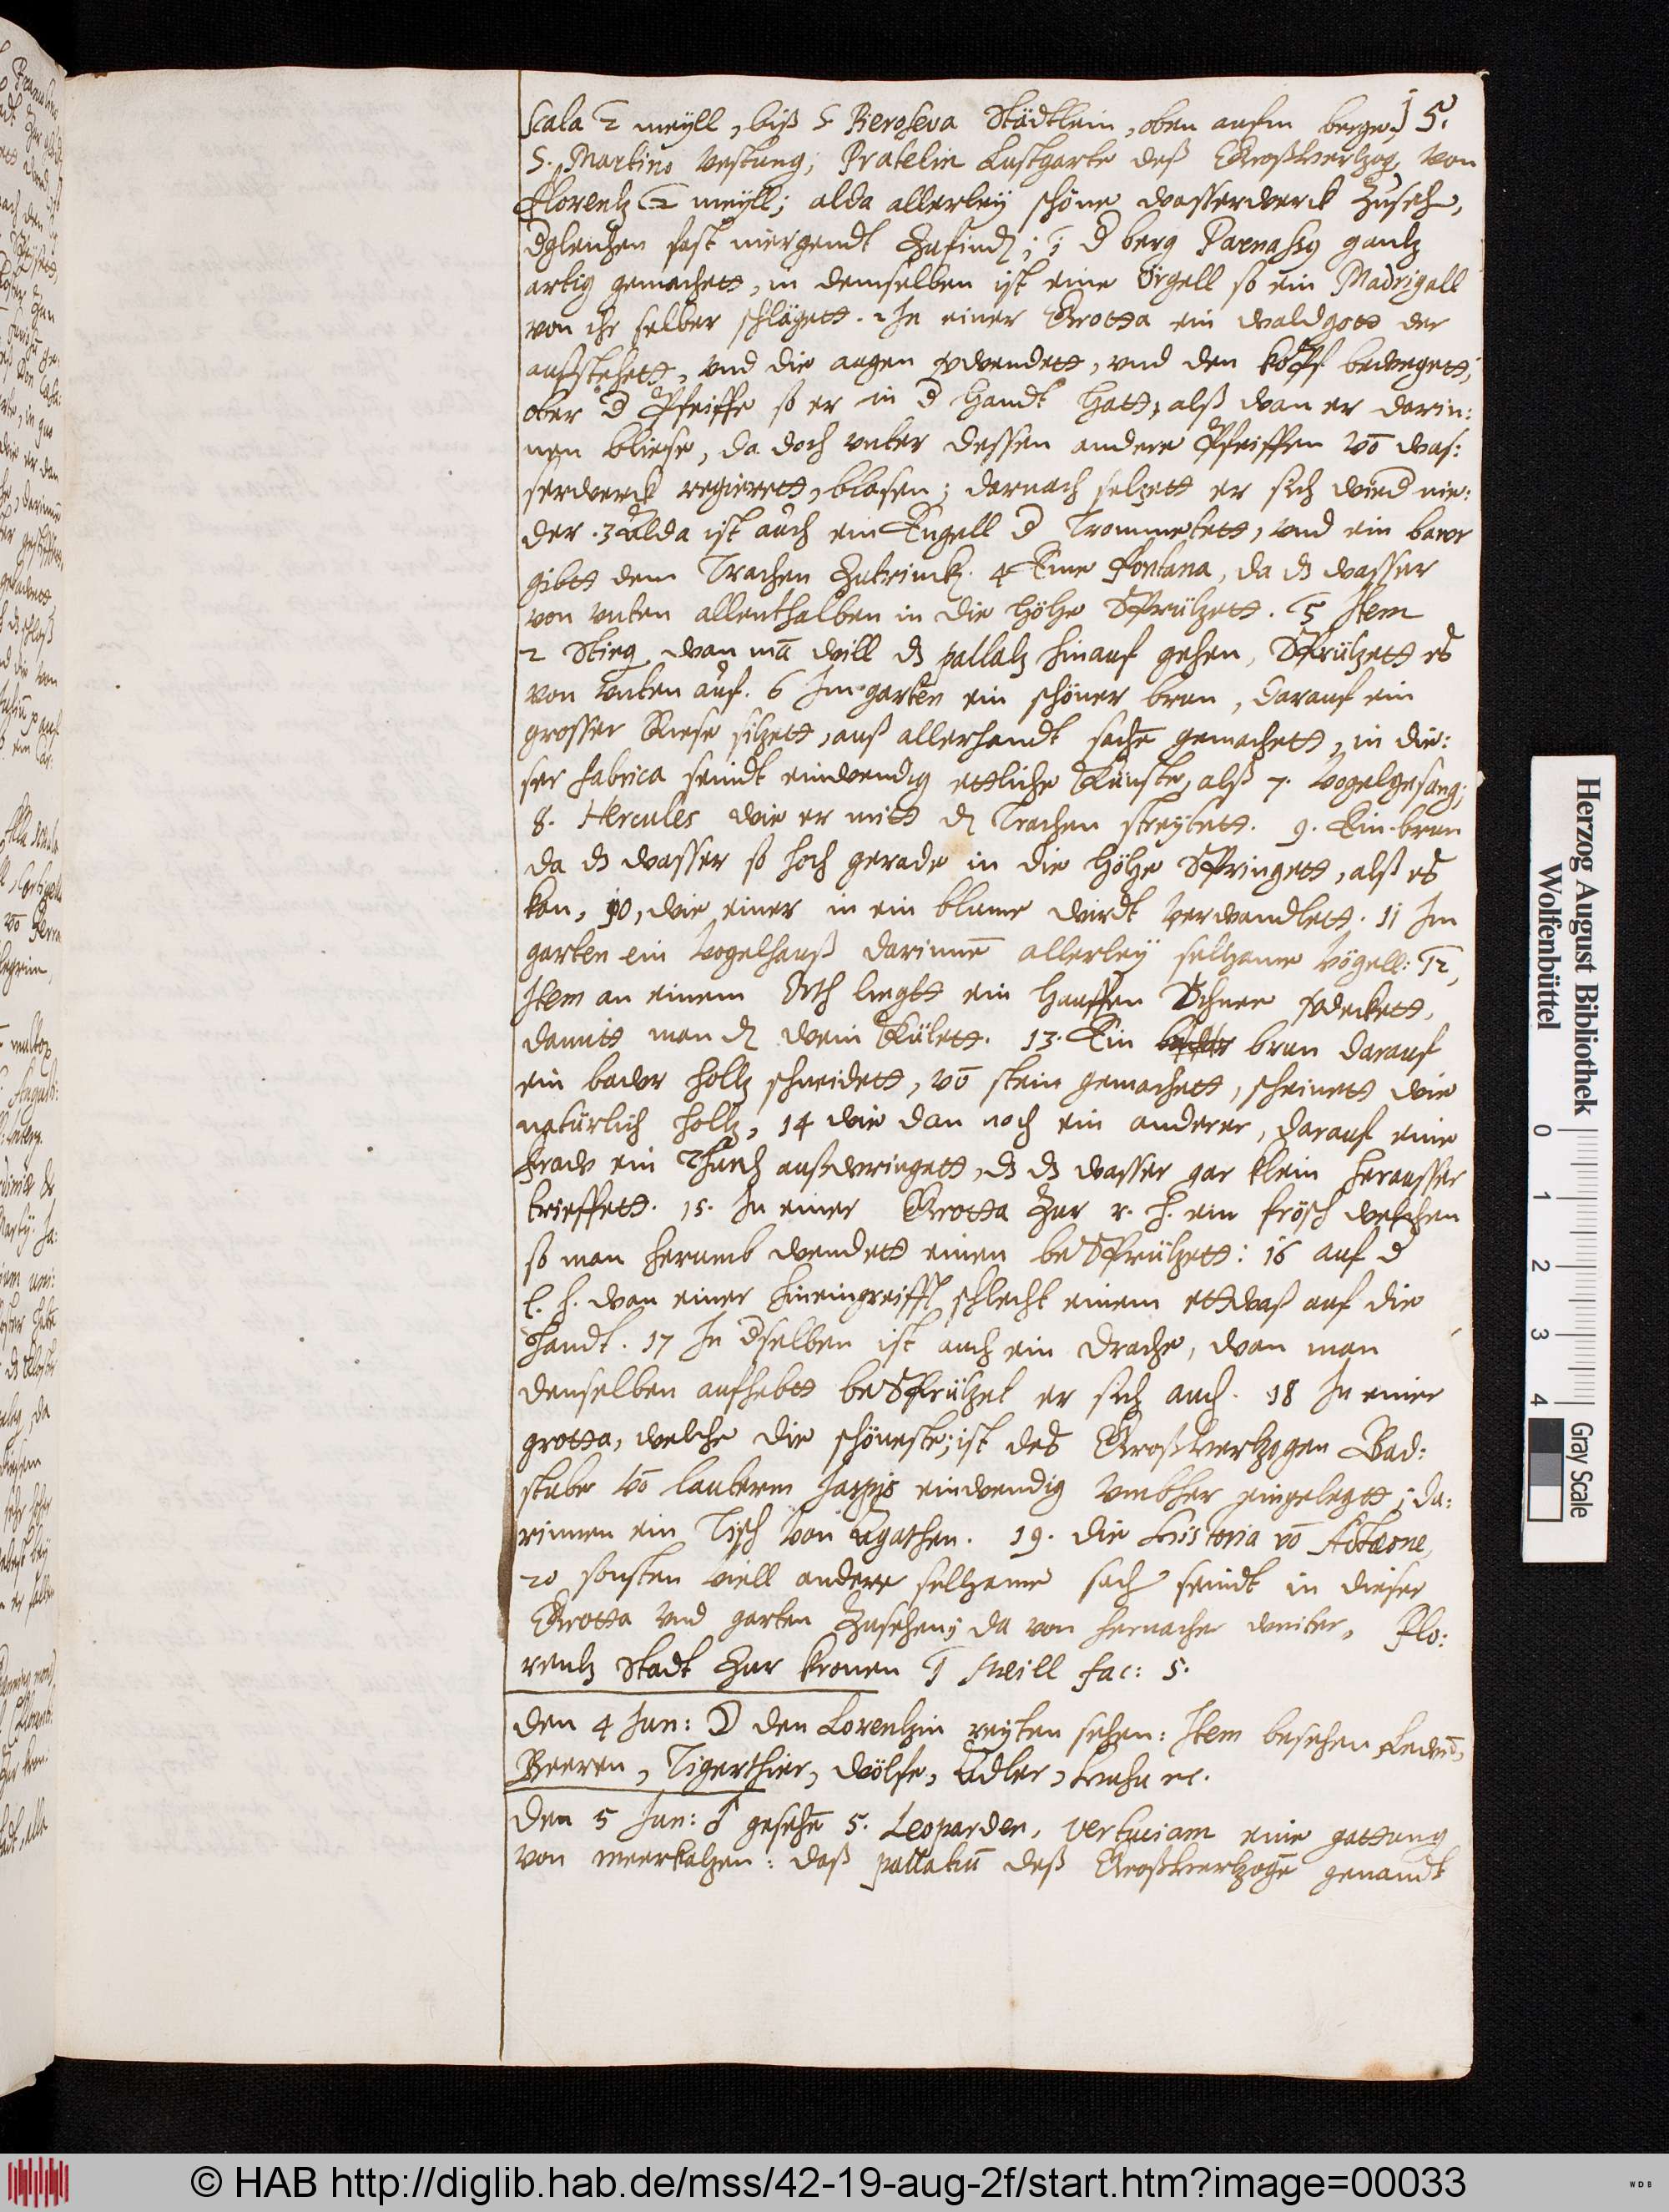 15.
Scala 2 meyll, biß S Pieroseva Städtlein, oben aufm berge
S. Martino Vestung; Pratelin Lustgarte deß Großhertzog, von
Florentz 2 meyll; alda allerley schöne wasserwerck zuseh,
dgleichen fast niergendt zufind; 1 d berg Parnassg gantz
artig gemachett, in demselben ist eine Orgell so ein Madrigall
von ihr selber schlägett. 2 In einer Grotta ein waldgott der
aufstehett, vnd die augen vwendett, vnd den kopff bewegett,
ober d Pfeiffe so er in d handt hatt, alß wan er darin:
nen bliese, da doch vnter dessen andere Pfeiffen vō was:
serwerck regierett, blasen; darnach setzett er sich wied nie:
der. 3 Alda ist auch ein Engell d Trommetett, vnd ein bawr
gibtt dem Trachen zutrinck. 4 Eine Fontana, da ds wasser
von vnten allenthalben in die höhe Sprützett. 5 Item
2 Stieg wan mā will ds pallatz hinauf gehen, Sprützett es
von vnten auf. 6 Im garten ein schöner brun, darauf ein
grosser Riese sitzett, auß allerhandt sachē gemachett, in die:
ser fabrica seindt einwendig ettliche Künste, alß 7. Vogelgesang;
8. Hercules wie er mitt d Trachen streytett. 9. Ein brun
da ds wasser so hoch gerade in die höhe Springett, alß es
kan, 10, wie einer in ein blume wirdt verwandlett. 11 Im
garten ein Vogelhauß darinnē allerley seltzame Vögell: 12,
Item an einem Orth liegtt ein hauffen Schnee vdeckett,
damitt man d wein Külett. 13. Ein brun darauf
ein bawr holtz schneidett, vō stein gemachett, scheinett wie
natürlich holtz, 14 wie dan noch ein anderer, darauf eine
fraw ein Thuch außwringett, ds ds wasser gar klein herausser
trieffett. 15. In einer Grotta zur r. h. ein frösch welchen
so man herumb wendett einen beSprützett: 16 auf d
l. h. wan einer hineingreifft schlecht einem ettwaß auf die
handt. 17 In dselben ist auch ein drache, wan man
denselben aufhebtt beSprützet er sich auch. 18 In einer
grotta, welche die schöneste; ist des Großhertzogen Bad:
stube vō lauterm Jaspis einwendig vmbher eingelegtt; da:
rinnen ein Tisch von Agathen. 19. die Historia vō Actæone,
20 sonsten viell andere seltzame sach seindt in dieser
Grotta vnd garten zusehen; da von hernacher weiter, Flo:
rentz Stadt zur kronen 1 Meill fac: 5.
den 4 Jun: ☽ den Lorentzin reyten sehen: Item besehen Lewē,
Beeren, Tigerthier, wölfe, Adler, etc.
den 5 Jun: ♂ gesehē 5. Leoparden, vertuciam eine gattung
von meerkatzen: daß pallatiū deß Großhertzogē genandt
Herzog August Bibliothek
Wolfenbüttel
0 1 2 3 4
Gray Scale
© HAB http://diglib.hab.de/mss/42-19-aug-2f/start.htm?image=00033
WDB